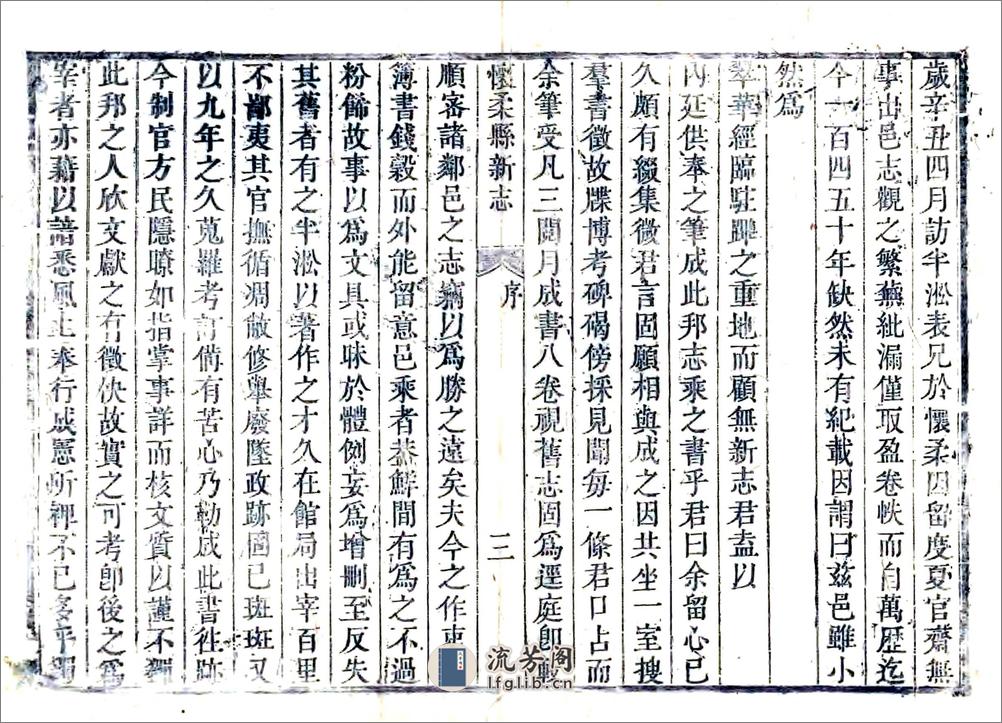 歲辛丑四月訪半淞表兄於懷柔因留度夏官齋無
事出邑志觀之繁蕪紕漏僅取盈卷帙而自萬歷迄
今一百四五十年缺然未有紀載因謂曰茲邑雖小
然爲
翠華經臨駐蹕之重地而顧無新志君盍以
內廷供奉之筆成此邦志乘之書乎君曰余留心已
久頗有綴集微君言固願相與成之因共坐一室搜
羣書徵故牒博考碑碣傍採見聞每一條君口占而
余筆受凡三閱月成書八卷視舊志固爲逕庭卽較
懷柔縣新志
序
三
順審諸鄰邑之志竊以爲勝之遠矣夫今之作吏
簿書錢穀而外能留意邑乘者葢鮮間有爲之不過
粉飾故事以爲文具或昧於體例妄爲增刪至反失
其舊者有之半淞以著作之才久在館局出宰百里
不鄙夷其官撫循凋敝修舉廢墜政跡固已斑斑又
以九年之久蒐羅考訂備有苦心乃勒成此書徃跡
今制官方民隱瞭如指掌事詳而核文質以謹不獨
此邦之人欣文獻之有徵快故實之可考卽後之爲
宰者亦藉以諳悉風土奉行成憲所裨不已多乎
流芳閣
lfglib.cn